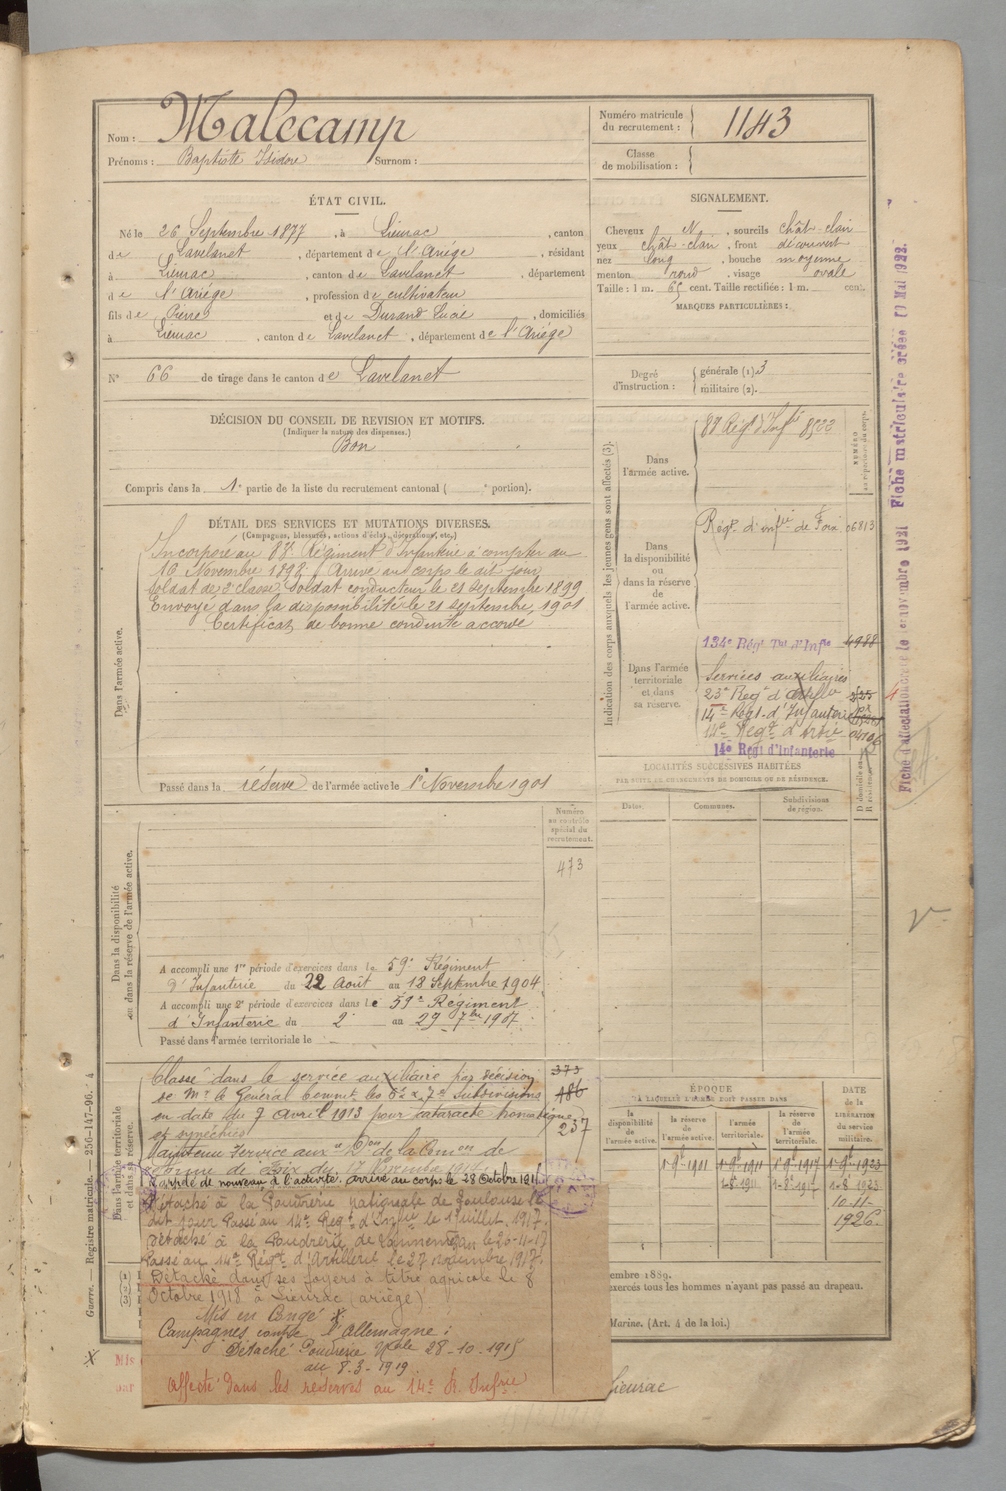 Nom : Malecamp
Prénoms : Baptiste Isidore Surnom :
Numéro matricule du recrutement : 1143
Classe de mobilisation :
ÉTAT CIVIL.
Né le 26 Septembre 1877, à Lieurac, canton
de Lavelanet, département de l'Ariège, résidant
à Lieurac, canton de Lavelanet, département
de l'Ariège, profession de cultivateur
fils de Pierre et de Durand Lucie, domiciliés
à Lieurac, canton de Lavelanet, département de l'Ariège
N° 66 de tirage dans le canton de Lavelanet
SIGNALEMENT.
Cheveux N, sourcils chât-clair
yeux chât-clair, front découvert
nez long, bouche moyenne
menton rond, visage ovale
Taille : 1 m. 65 cent. Taille rectifiée : 1 m. cent.
MARQUES PARTICULIÈRES :
Degré d'instruction : générale (1) 3
militaire (2).
DÉCISION DU CONSEIL DE REVISION ET MOTIFS.
(Indiquer la nature des dispenses.)
Bon
Compris dans la 1e partie de la liste du recrutement cantonal ( e portion).
DÉTAIL DES SERVICES ET MUTATIONS DIVERSES.
(Campagnes, blessures, actions d'éclat, décorations, etc.)
Dans l'armée active.
Incorporé au 87e Régiment d'Infanterie à compter du
16 Novembre 1898. Arrivé au corps le dit jour
soldat de 2e classe. Soldat conducteur le 21 septembre 1899
Envoyé dans la disponibilité le 21 septembre 1901
Certificat de bonne conduite accordé
Passé dans la réserve de l'armée active le 1er Novembre 1901
Indication des corps auxquels les jeunes gens sont affectés (3).
NUMÉRO au répertoire du corps.
Dans l'armée active.
87 Régt d'Infie 8522
Dans la disponibilité ou dans la réserve de l'armée active.
Régt d'infie de Foix 06813
Dans l'armée territoriale et dans sa réserve.
134e Régt Tal d'Infie 4988
Services auxiliaires
23e Regt d'Artillie
14e Regt d'Infanterie
14e Regt d'Artie
14e Regt d'Infanterie
LOCALITÉS SUCCESSIVES HABITÉES
PAR SUITE DE CHANGEMENTS DE DOMICILE OU DE RÉSIDENCE.
Dates. Communes. Subdivisions de région. D domicile ou R résidence.
Dans la disponibilité ou dans la réserve de l'armée active.
Numéro au contrôle spécial du recrutement.
473
A accompli une 1re période d'exercices dans le 59e Régiment
d'Infanterie du 22 Août au 18 Septembre 1904
A accompli une 2e période d'exercices dans le 59e Régiment
d'Infanterie du 2 au 29 7bre 1907
Passé dans l'armée territoriale le
Dans l'armée territoriale et dans sa réserve.
Classé dans le service auxiliaire par décision
de Mr le Général Commt les 6e & 7e Subdivisions
en date du 7 Avril 1913 pour cataracte
et synéchies
373
486
237
Maintenu service aux
réforme de Foix du
Rappelé de nouveau à l'activité. arrivé au corps le 28 Octobre 1915
Détaché à la Poudrerie nationale de Toulouse le
dit jour Passé au 14e Regt d'Infie le 1er Juillet 1917.
Détaché à la Poudrerie de Lannemezan le 20-11-17
Passé au 14e Régt d'Artillerie le 27 novembre 1917.
Détaché dans ses foyers à titre agricole le 8
Octobre 1918 à Lieurac (ariège)
Mis en Congé
Campagnes contre l'Allemagne :
Détaché Poudrerie Nale 28-10-1915
au 8.3-1919
affecté dans les réserves au 14e R. Infrie
ÉPOQUE
À LAQUELLE L'HOMME DOIT PASSER DANS
la disponibilité de l'armée active. la réserve de l'armée active. l'armée territoriale. la réserve de l'armée territoriale.
DATE DE LA LIBÉRATION du service militaire.
1-9e 1901 1-9e 1911 1-9e 1917 1-9e 1923
1-8e 1911 1-8e 1917 1-8e 1923
10-11-
1926
embre 1889.
exercés tous les hommes n'ayant pas passé au drapeau.
Marine. (Art. 4 de la loi.)
Lieurac
Mis
par
Guerre. — Registre matricule. — 256-147-96.
Fiche d'affectation créée le 1er novembre 1921 Fiche matriculaire créée 17 Mai 1922.